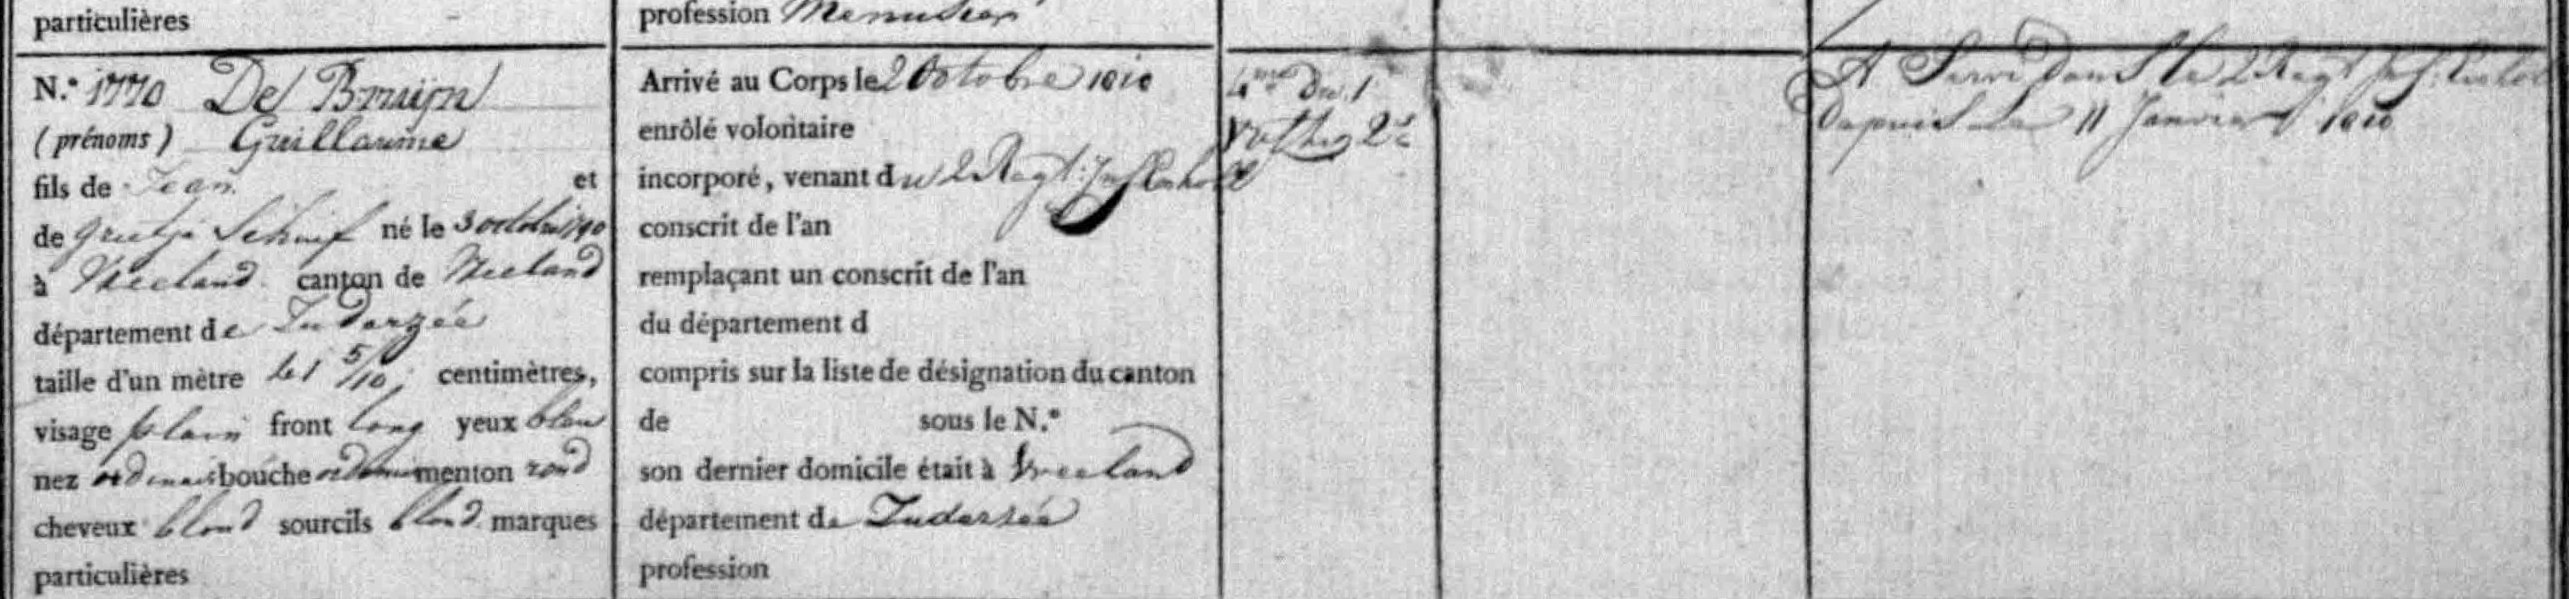 particulières
profession Menuisier
N.° 1770 De Bruijn
(prénoms) Guillaume
fils de Jean et
de Grietje Schuif né le 3 octobre 1790
à Vreeland canton de Vreeland
département de Zuderzée
taille d'un mètre 5/10 centimètres,
visage plain front long yeux bleu
nez ordinair bouche ordinair menton rond
cheveux blond sourcils blond marques
particulières
Arrivé au Corps le 2 Octobre 1810
enrôlé volontaire
incorporé, venant du 2 Regt: Inf
conscrit de l'an
remplaçant un conscrit de l'an
du département d
compris sur la liste de désignation du canton
de sous le N.°
son dernier domicile était à Vreeland
département de Zuderzée
profession
4me Du 1
2e
A Servi dans le 2 Regt Inf:
Depuis Le 11 Janvier 1810